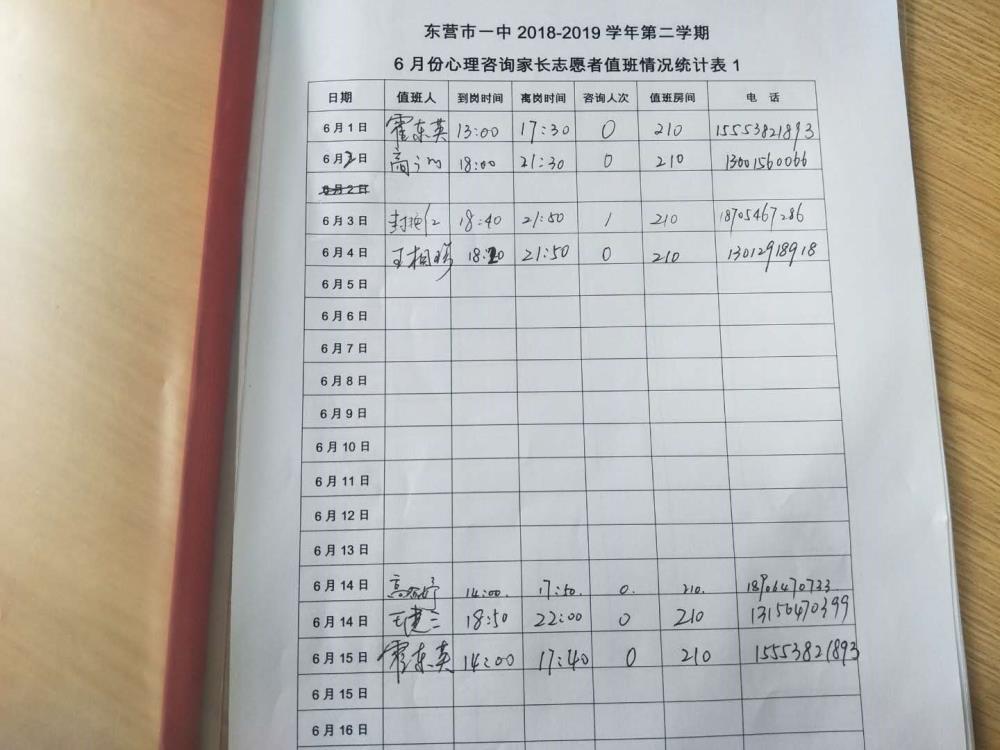 东营市一中 2018-2019 学年第二学期
6 月份心理咨询家长志愿者值班情况统计表 1
日期 值班人 到岗时间 离岗时间 咨询人次 值班房间 电 话
6 月 1 日 霍东英 13:00 17:30 0 210 15553821893
6 月 2 日 高 18:00 21:30 0 210 13001560066
6 月 2 日
6 月 3 日 封 18:40 21:50 1 210 18705467286
6 月 4 日 王相 18:20 21:50 0 210 13012918918
6 月 5 日
6 月 6 日
6 月 7 日
6 月 8 日
6 月 9 日
6 月 10 日
6 月 11 日
6 月 12 日
6 月 13 日
6 月 14 日 高 14:00. 17:50. 0. 210. 18906470733
6 月 14 日 王建三 18:50 22:00 0 210 13156470399
6 月 15 日 霍东英 14:00 17:40 0 210 15553821893
6 月 15 日
6 月 16 日